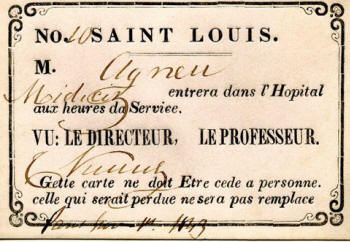 No. 10 SAINT LOUIS.
M. Agnew
entrera dans l'Hopital
aux heures da Serviee.
VU: LE DIRECTEUR, LE PROFESSEUR.
Gette carte ne doit Etre cede a personne.
celle qui serait perdue ne sera pas remplace